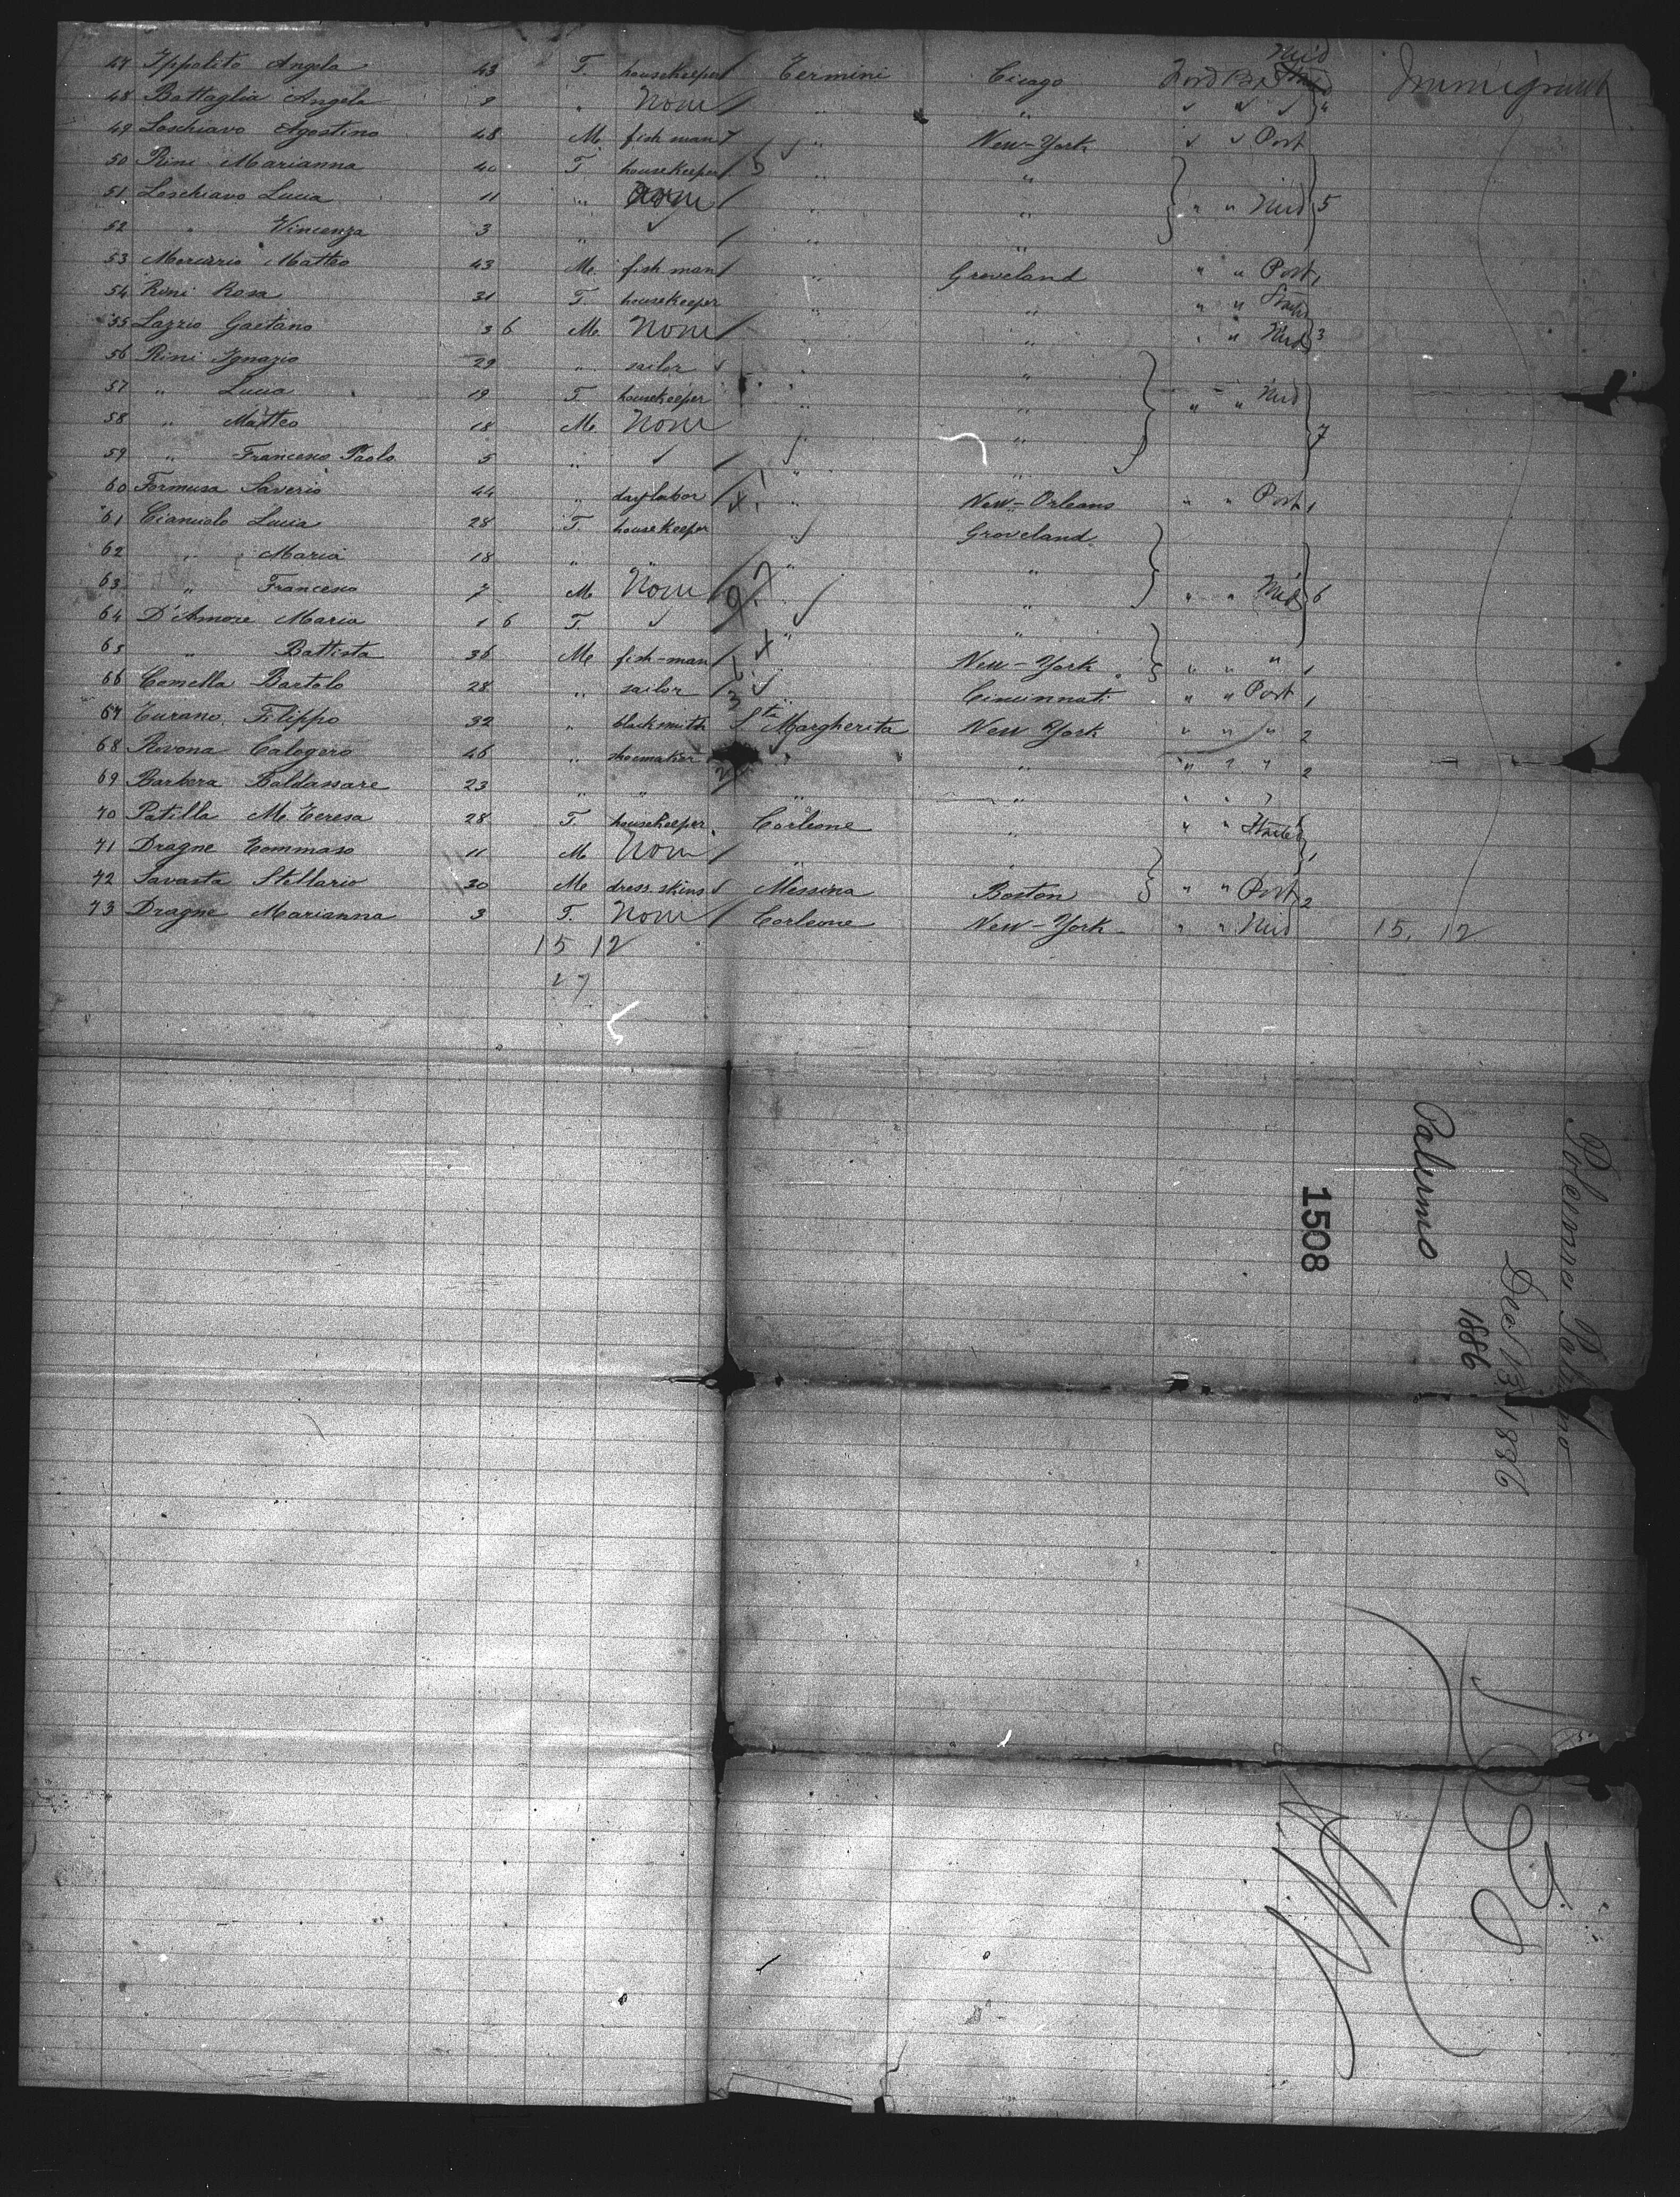 47 Ippolito Angela 43 F. housekeeper Termini Cicago Ford Bri Immigrant
48 Battaglia Angela 9 " None " " 4
49 Loschiavo Agostino 48 M. fish man " New-York Port
50 Rini Marianna 40 F. housekeeper " "
51 Loschiavo Lucia 11 " None " " " " Mid 5
52 " Vincenza 3 " " "
53 Mercurio Matteo 43 M. fish man " Groveland " " Port 1
54 Rini Rosa 31 F. housekeeper " " " "
55 Lazzio Gaetano 3 6 M. None " " " " Mid 3
56 Rini Ignazio 29 " sailor " "
57 " Lucia 19 F. housekeeper " " " " Mid
58 " Matteo 18 M. None " " 7
59 " Francesco Paolo 5 " " "
60 Formusa Saverio 44 " day labor " New-Orleans " " Port 1
61 Cianciolo Lucia 28 F. housekeeper " Groveland
62 " Maria 18 " " " "
63 " Francesco 7 M. None " " " Mid 6
64 D'Amore Maria 1 6 F. " "
65 " Battista 36 M. fish-man New-York " " " 1
66 Comella Bartolo 28 " sailor " Cincinnati " " Port 1
67 Turano Filippo 32 " blacksmith Sta Margherita New York " " " 2
68 Rivona Calogero 46 " shoemaker " " " " " 2
69 Barbera Baldassare 23 " " " " " " "
70 Patilla M. Teresa 28 F. housekeeper Corleone " " "
71 Dragne Tommaso 11 M. None " " 1
72 Savasta Stellario 30 M. dress. skins Messina Boston " " Port 2
73 Dragne Marianna 3 F. None Corleone New-York " " Mid 15. 12
15 12
27
Palermo
1508
1886
Dec 13 1886